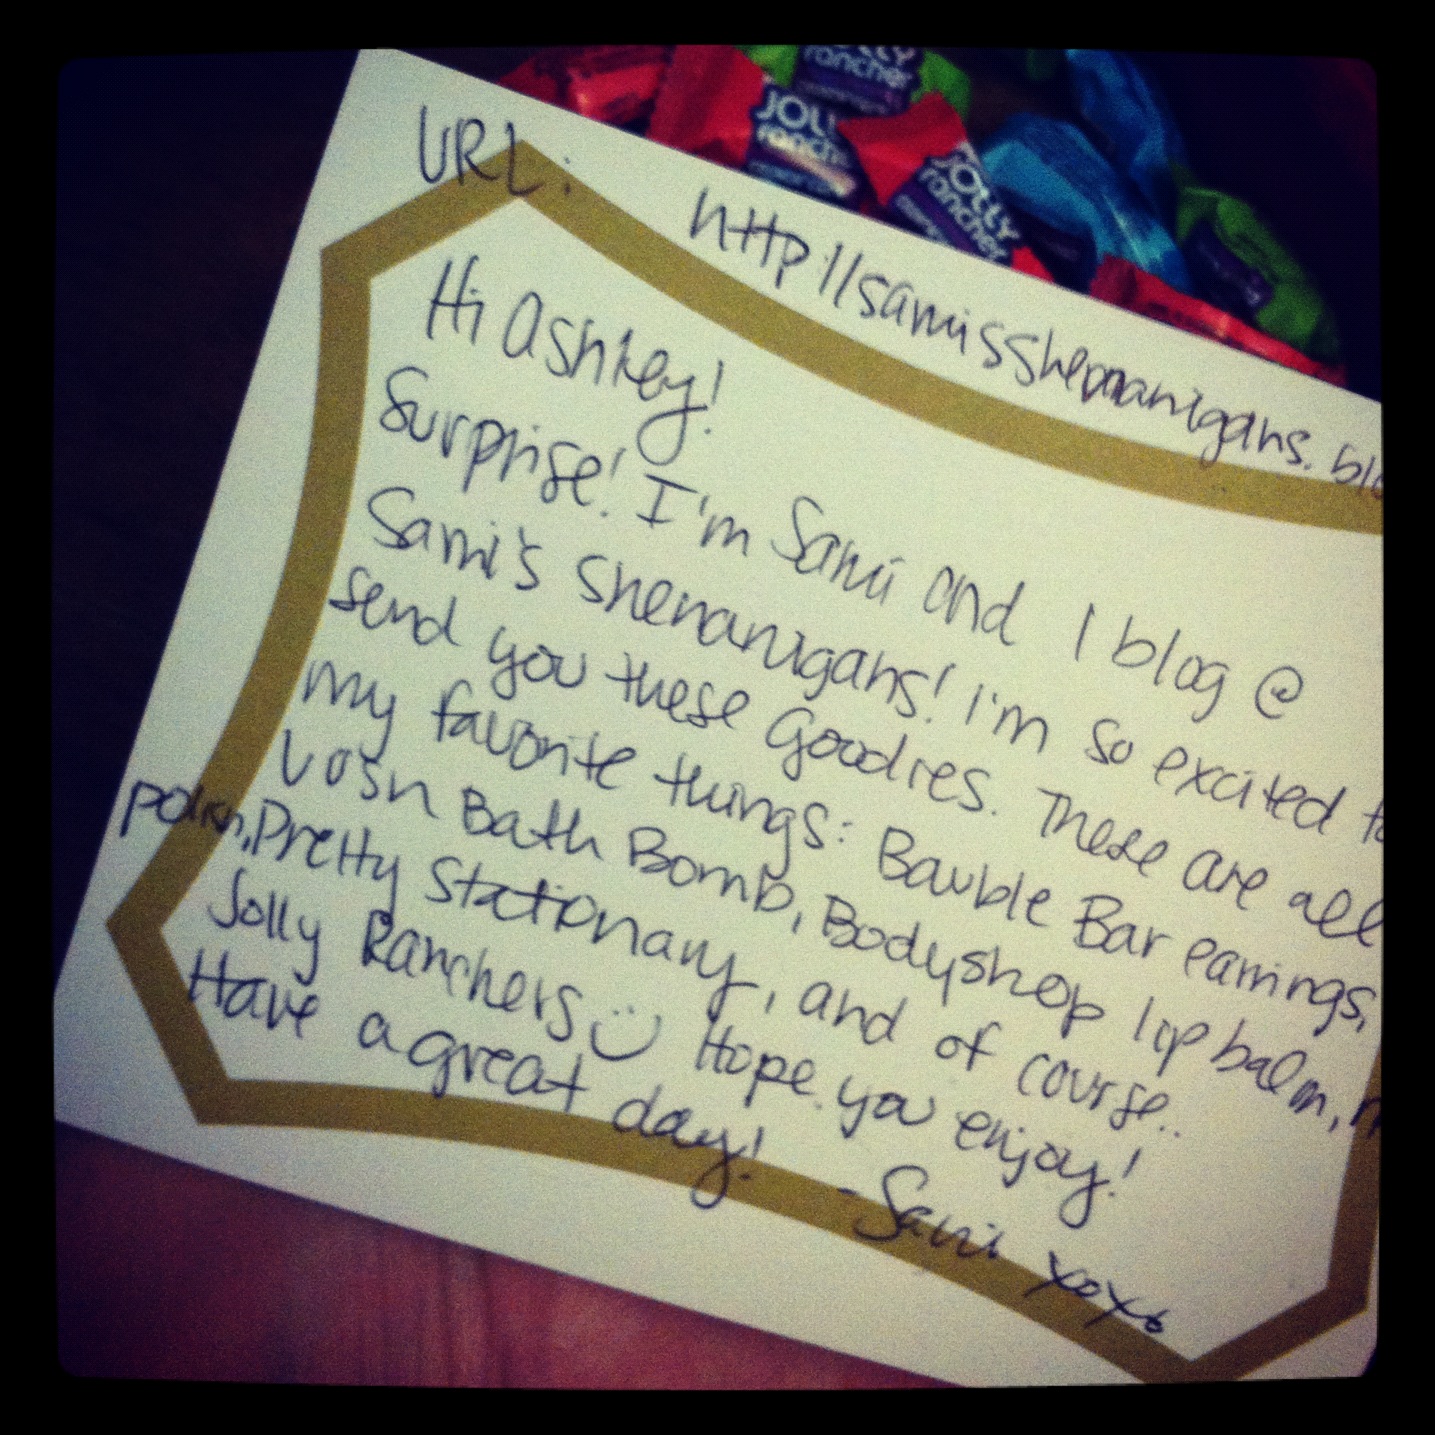 JOLLY rancher
JOLLY rancher
JOLLY rancher
URL: http://samisshenanigans.blo
Hi Ashley!
Surprise! I'm Sami and I blog @
Sami's Shenanigans! I'm so excited to
send you these Goodies. These are all
my favorite things: Bauble Bar earrings,
Lush Bath Bomb, Bodyshop lip balm,
polish, Pretty Stationary, and of course..
Jolly Ranchers Hope you enjoy!
Have a great day!
-Sami xoxo